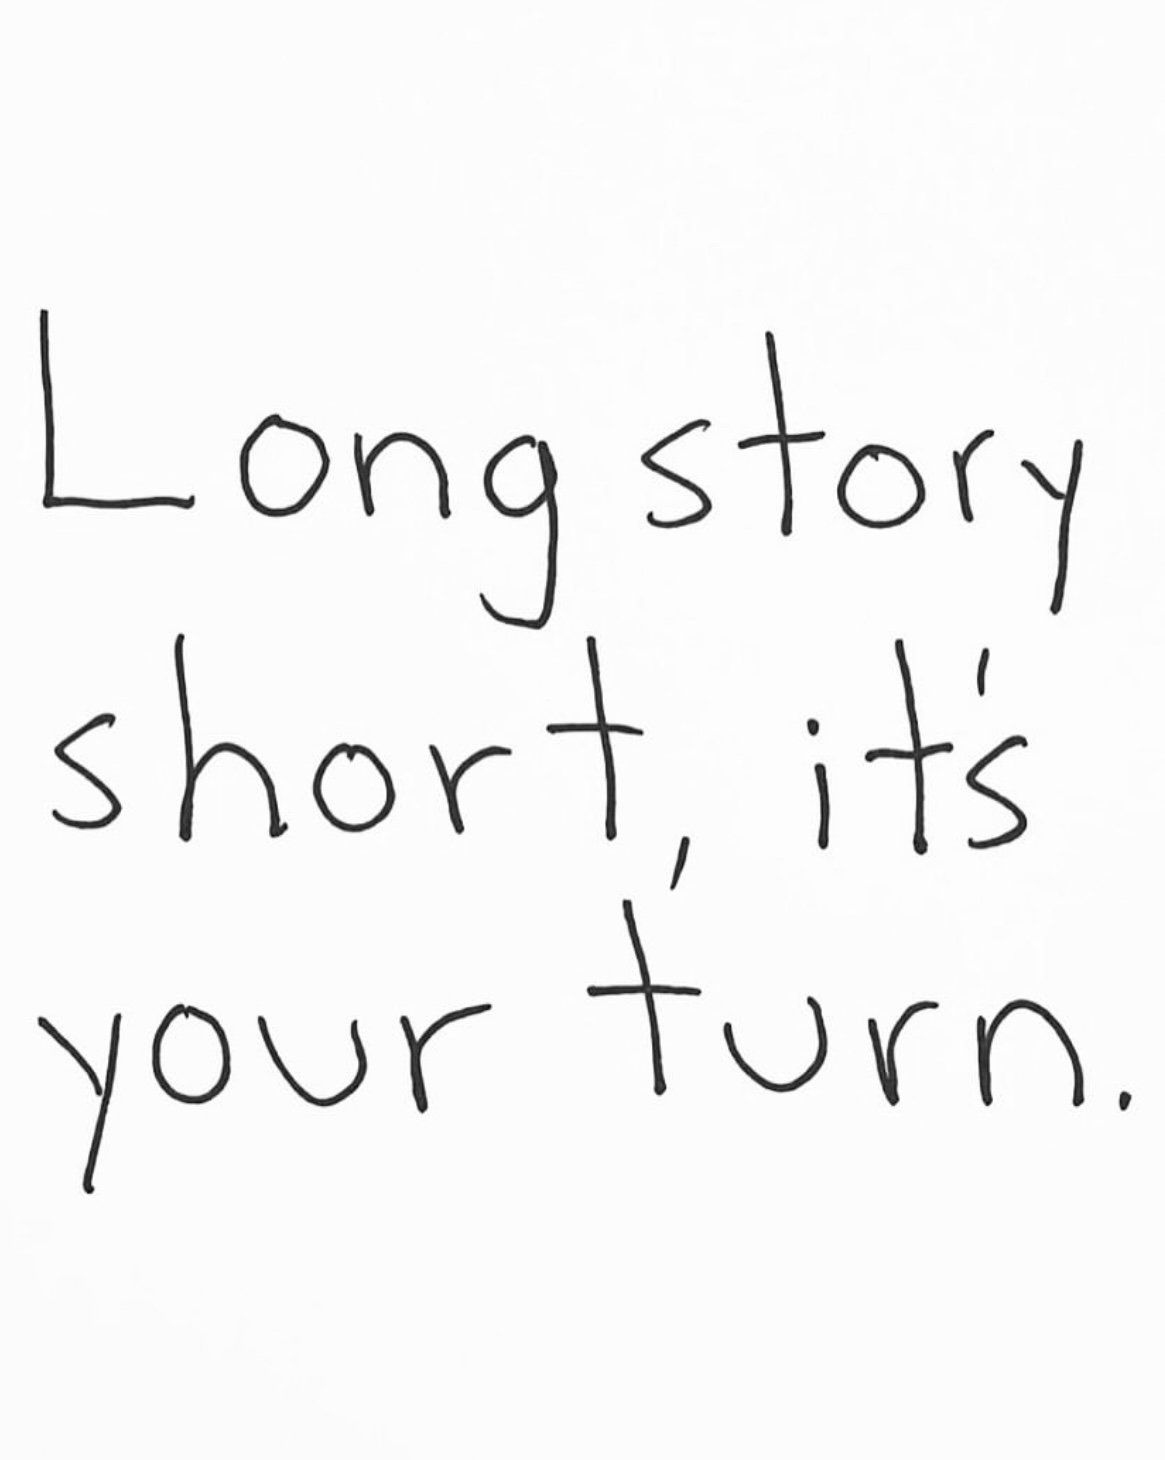 Long story
short, it's
your turn.